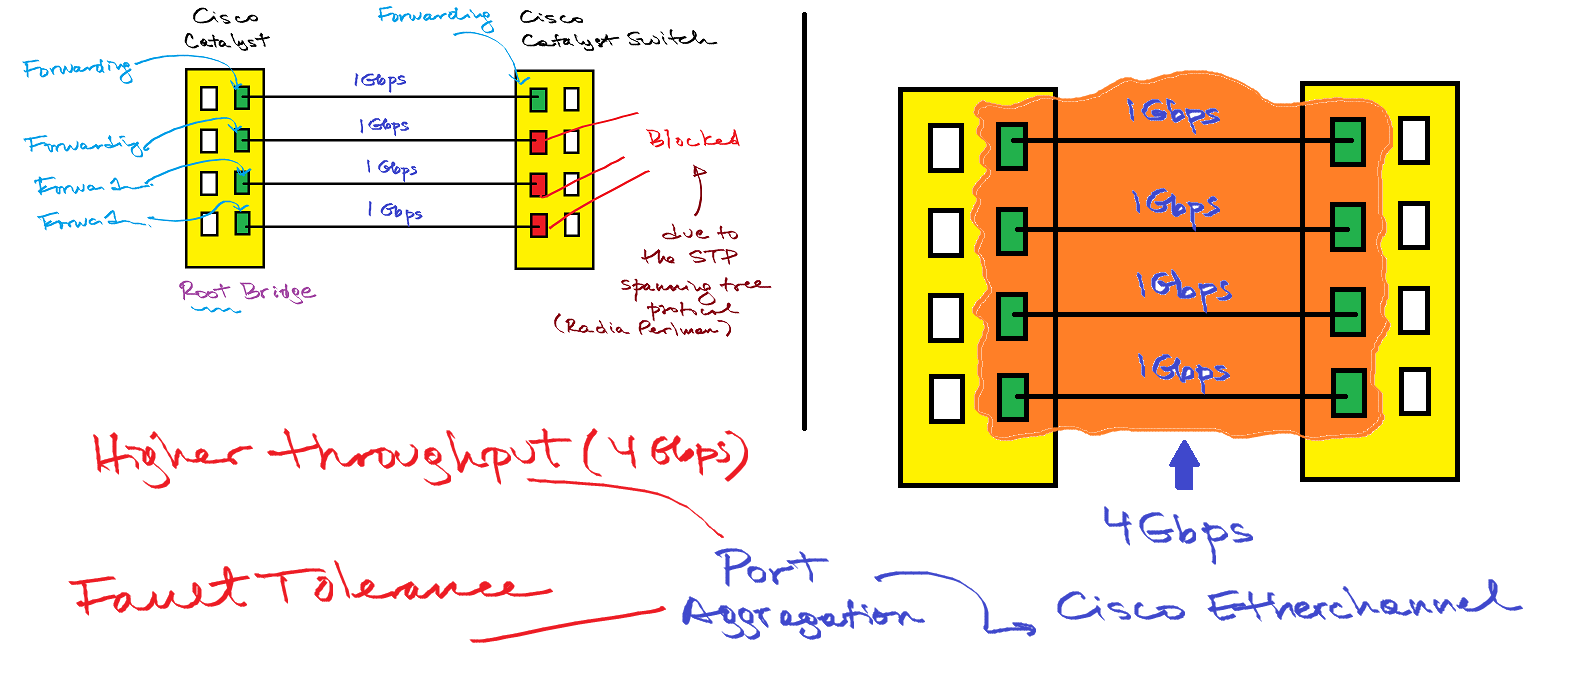 Cisco
Catalyst
Forwarding
Cisco
Catalyst Switch
Forwarding
Forwarding
Forwa
Forwa
1Gbps
1Gbps
1Gbps
1Gbps
Blocked
due to
the STP
spanning tree
protocol
(Radia Perlman)
Root Bridge
1Gbps
1Gbps
1Gbps
1Gbps
4Gbps
Higher throughput (4Gbps)
Fault Tolerance
Port
Aggregation
Cisco Etherchannel